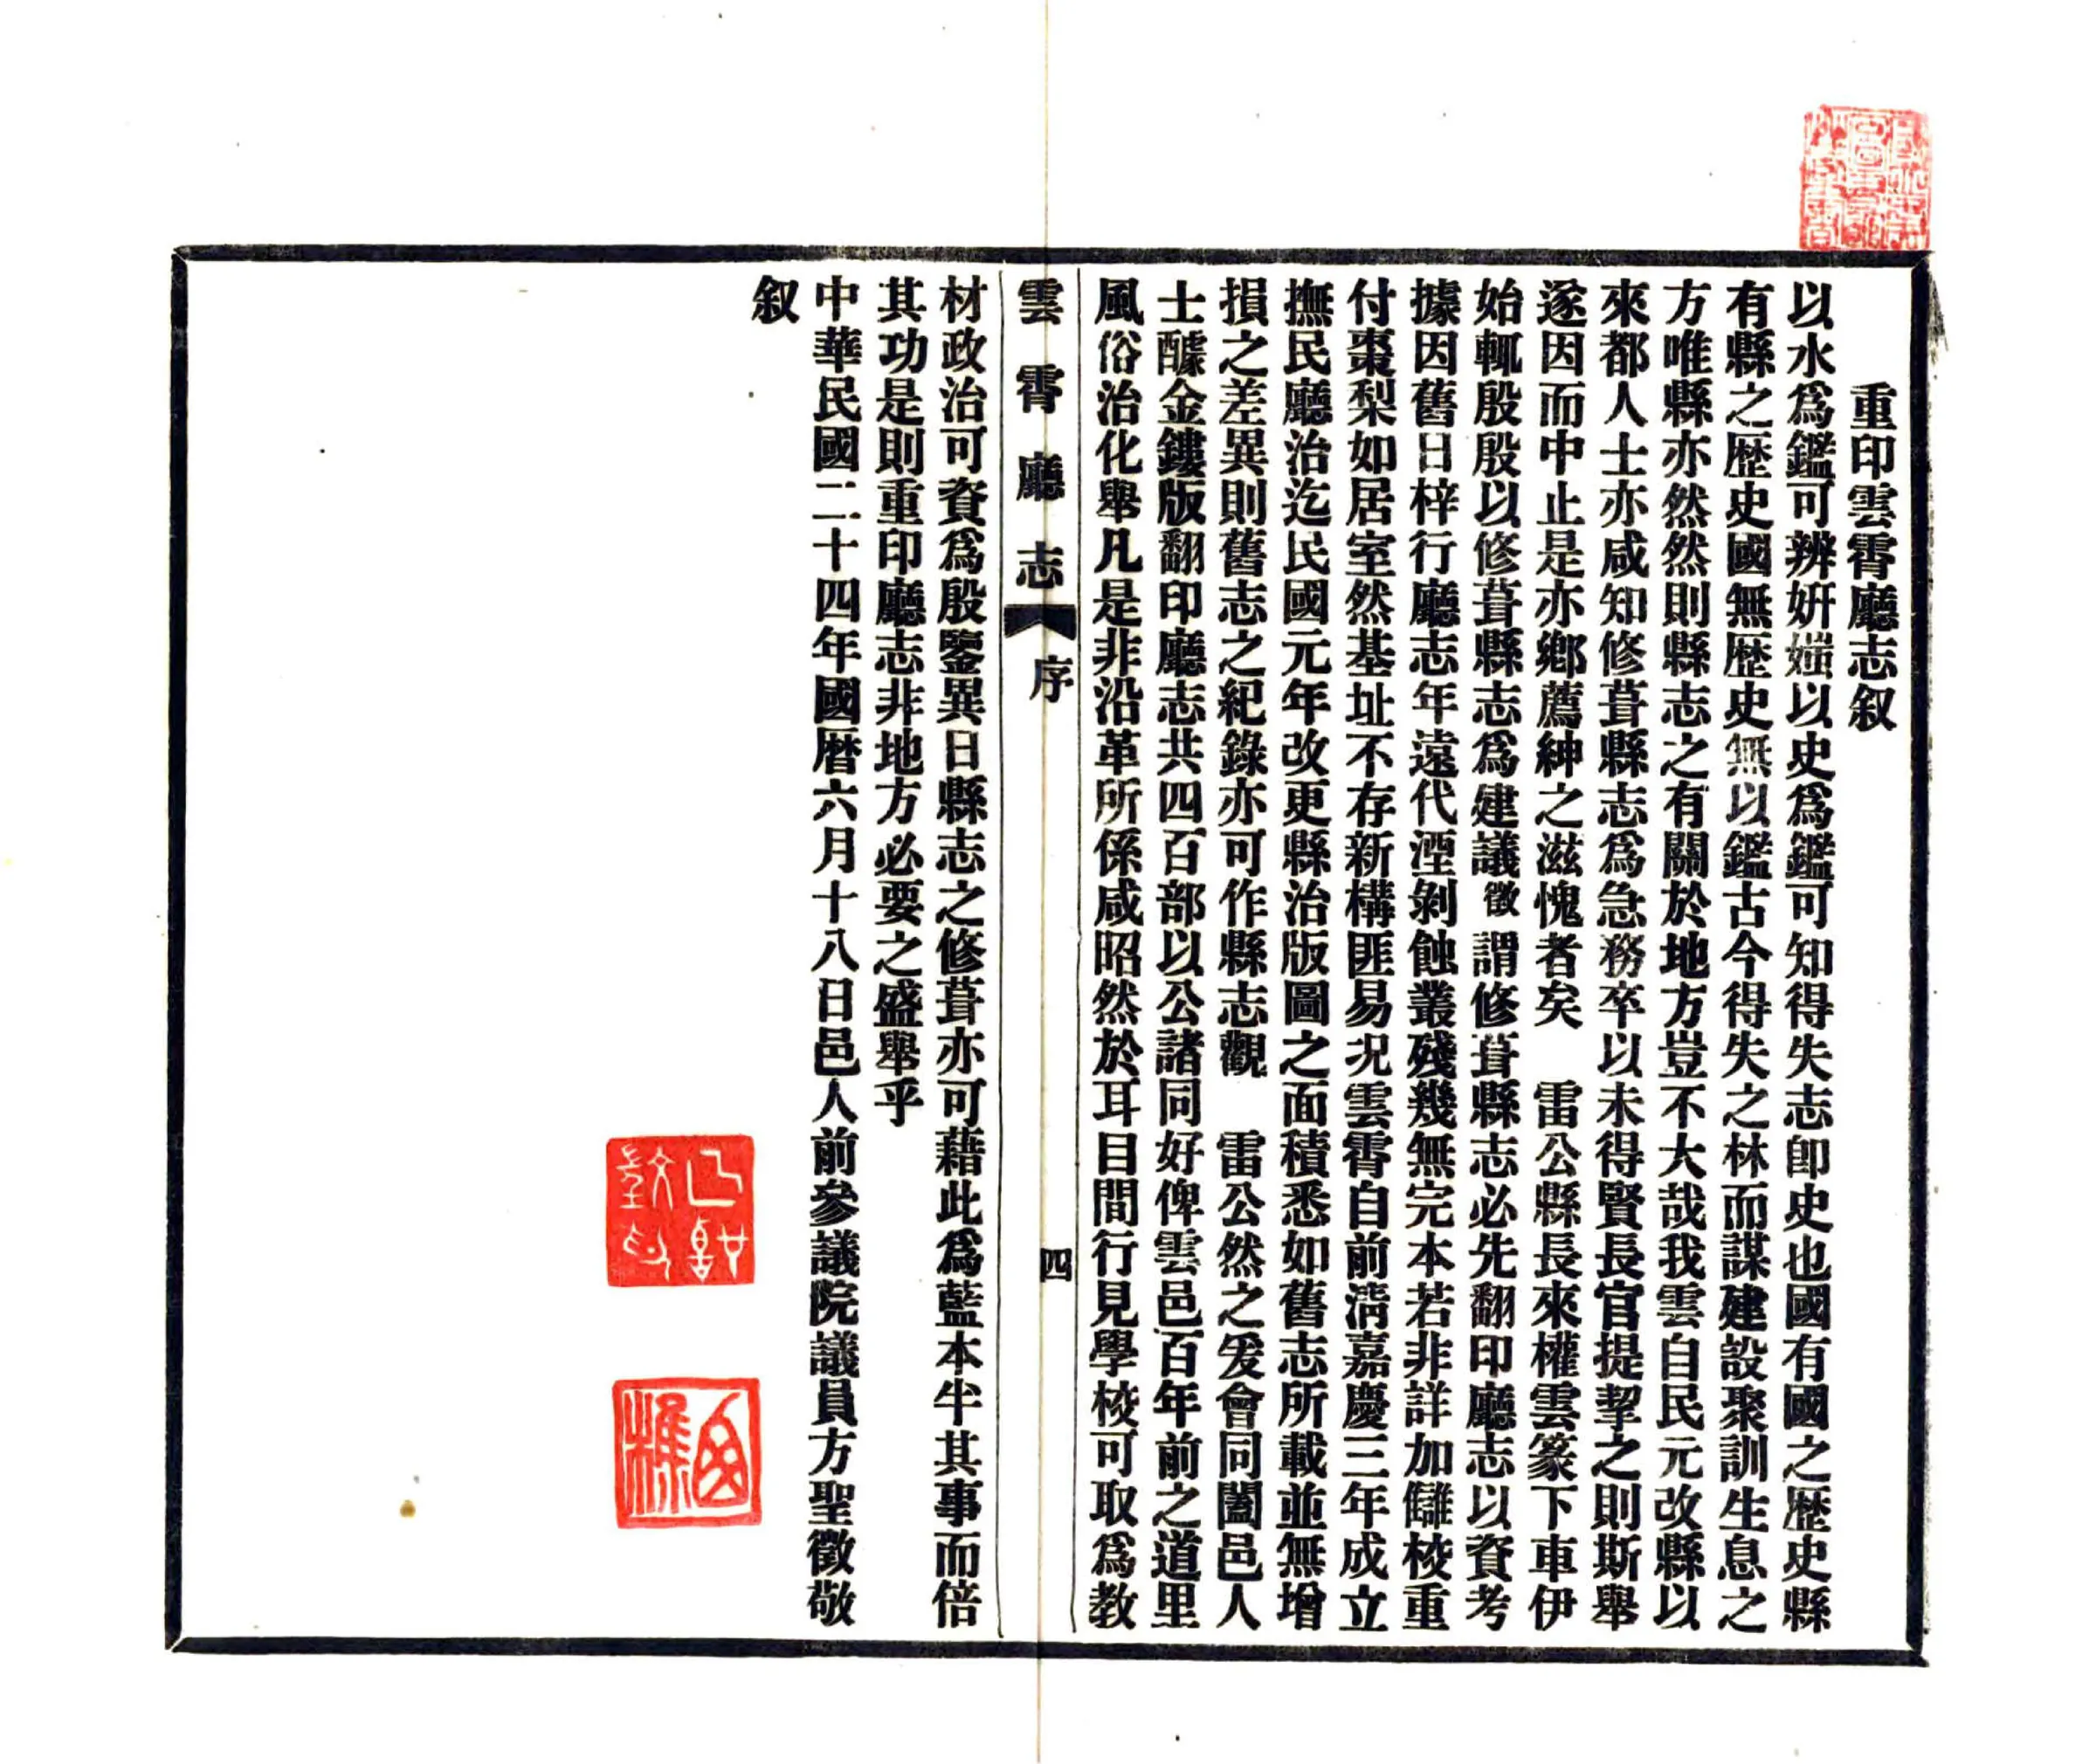 重印雲霄廳志叙
以水爲鑑可辨妍媸以史爲鑑可知得失志卽史也國有國之歷史縣
有縣之歷史國無歷史無以鑑古今得失之林而謀建設聚訓生息之
方唯縣亦然然則縣志之有關於地方豈不大哉我雲自民元改縣以
來都人士亦咸知修葺縣志爲急務卒以未得賢長官提挈之則斯舉
遂因而中止是亦鄉薦紳之滋愧者矣　雷公縣長來權雲篆下車伊
始輒殷殷以修葺縣志爲建議徵謂修葺縣志必先翻印廳志以資考
據因舊日梓行廳志年遠代湮剝蝕叢殘幾無完本若非詳加讎校重
付棗梨如居室然基址不存新構匪易况雲霄自前淸嘉慶三年成立
撫民廳治迄民國元年改更縣治版圖之面積悉如舊志所載並無增
損之差異則舊志之紀錄亦可作縣志觀　雷公然之爰會同闔邑人
士醵金鏤版翻印廳志共四百部以公諸同好俾雲邑百年前之道里
風俗治化舉凡是非沿革所係咸昭然於耳目間行見學校可取爲敎
雲霄廳志　序　四
材政治可資爲殷鑒異日縣志之修葺亦可藉此爲藍本半其事而倍
其功是則重印廳志非地方必要之盛舉乎
中華民國二十四年國曆六月十八日邑人前參議院議員方聖徵敬
叙